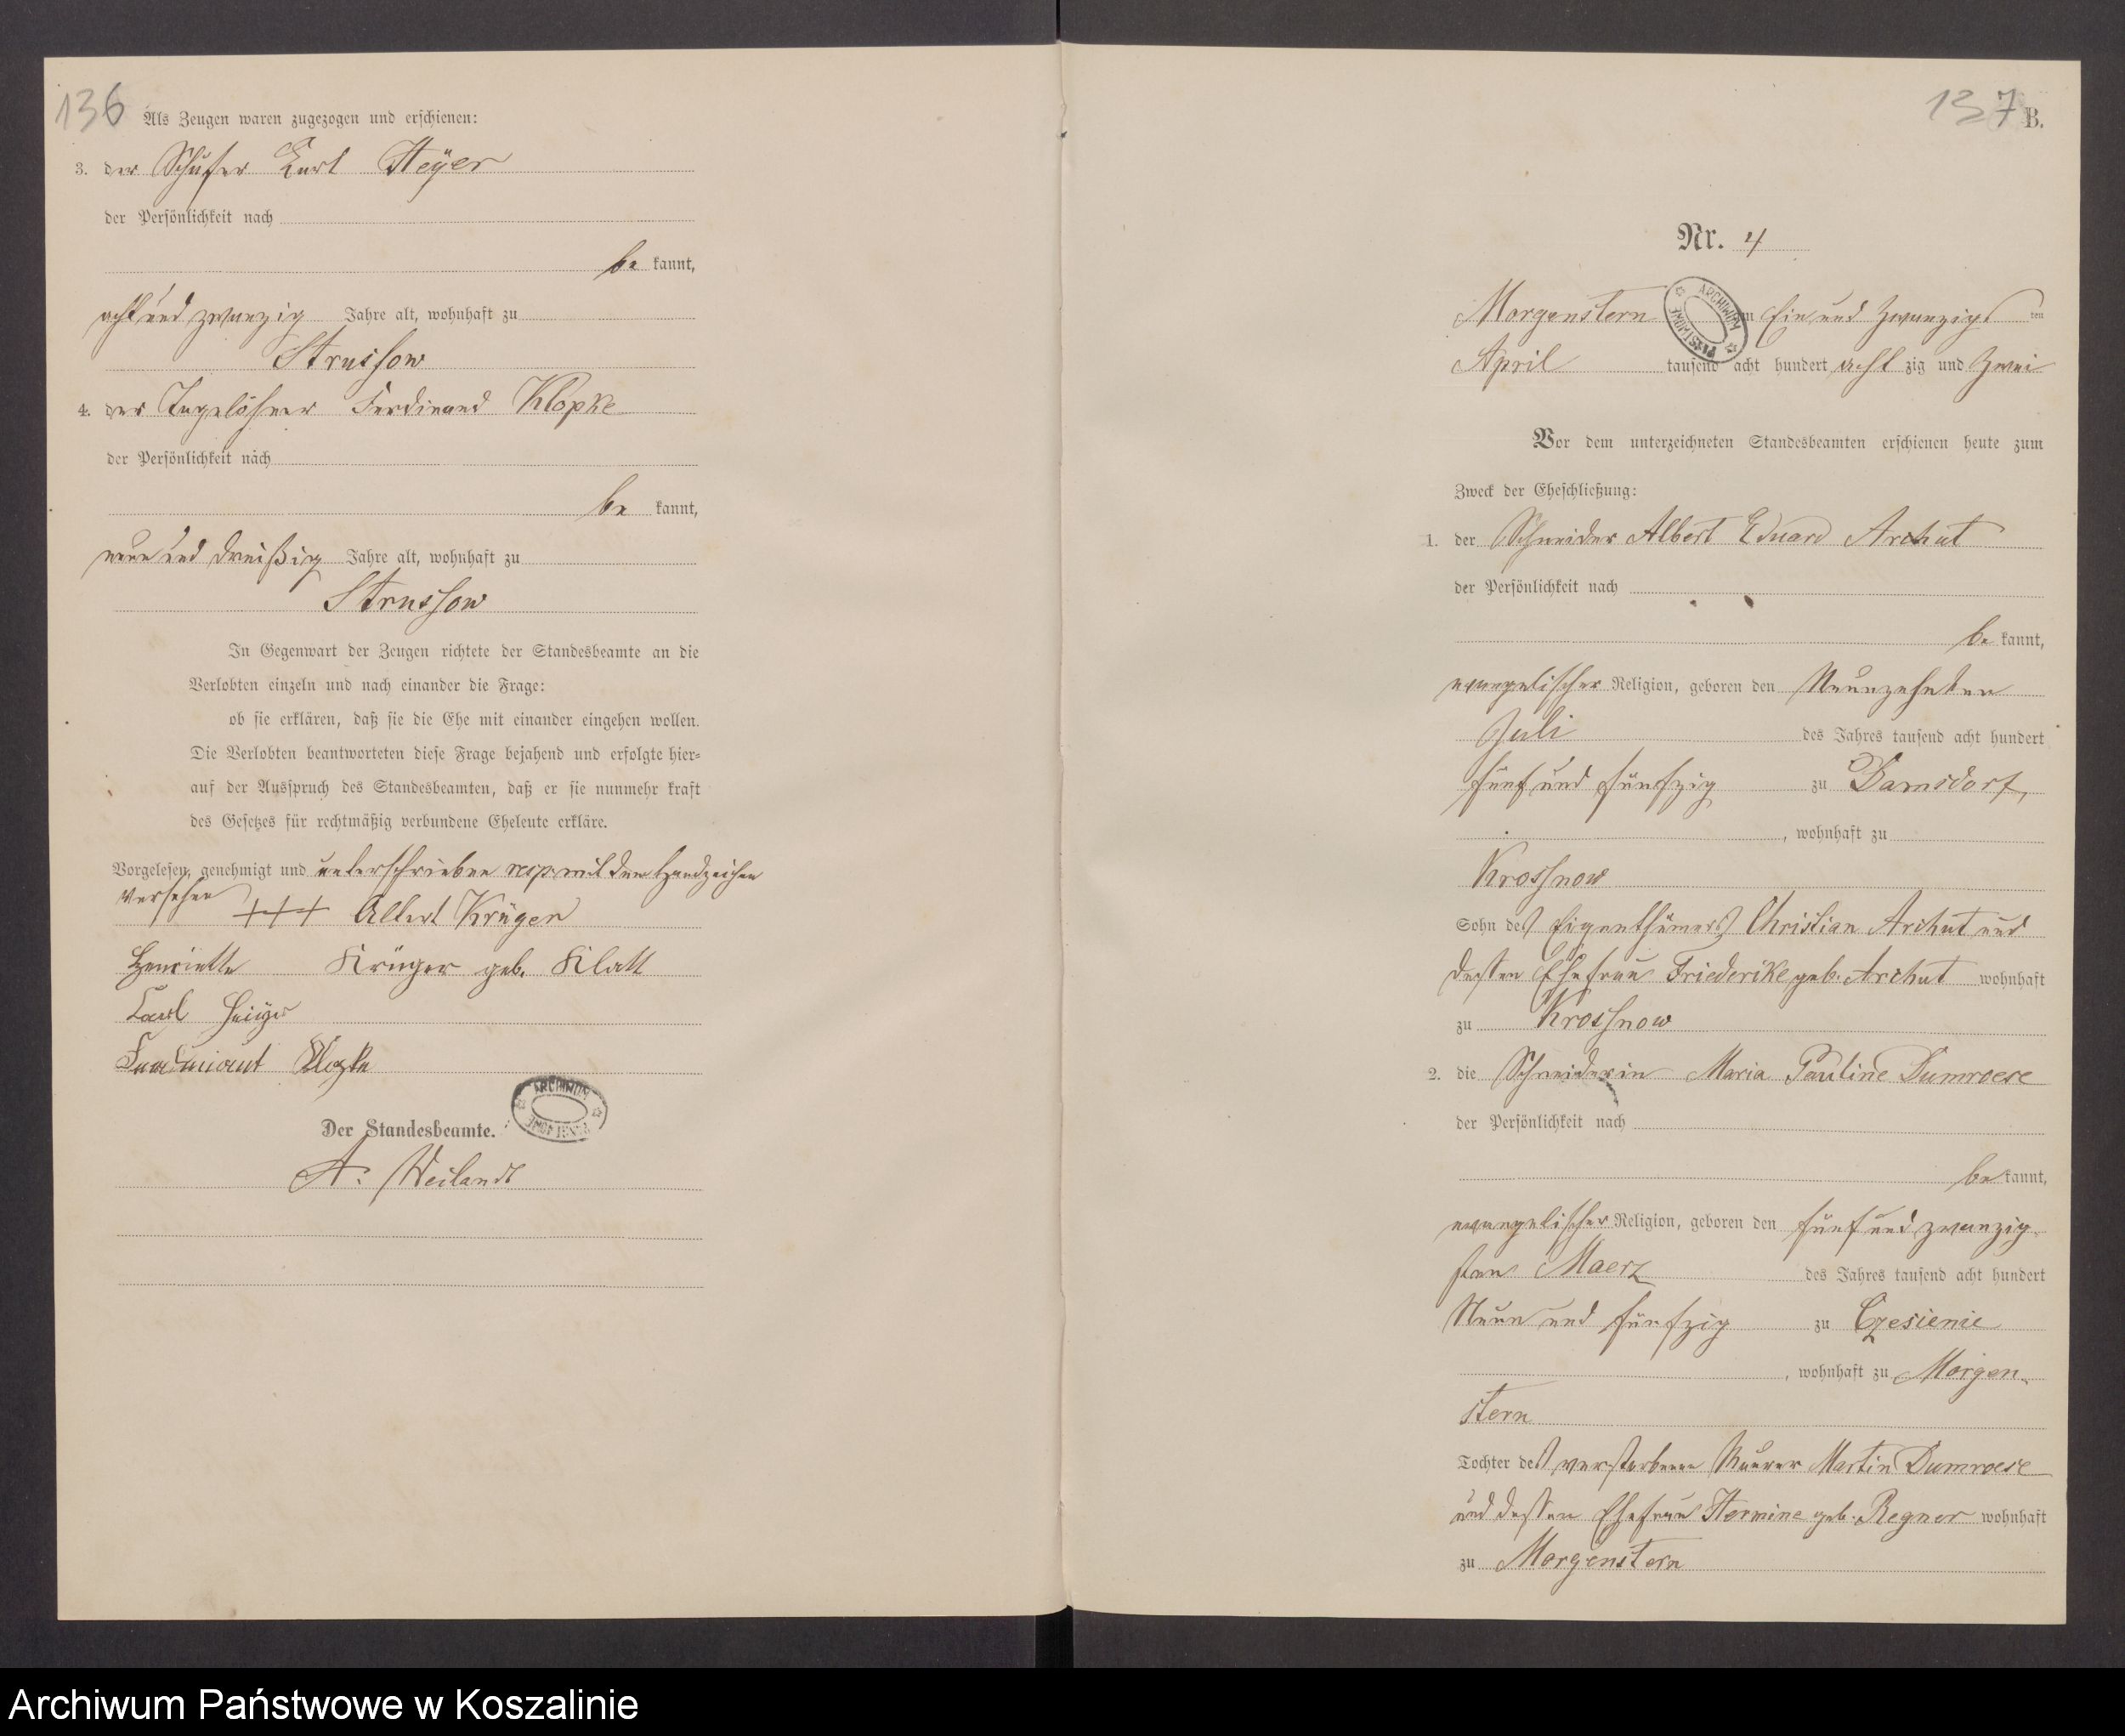 136
Als Zeugen waren zugezogen und erschienen:
3. der Schäfer Karl Heyer
der Persönlichkeit nach
be kannt,
acht und zwanzig Jahre alt, wohnhaft zu
Strussow
4. der Tagelöhner Ferdinand Klopke
der Persönlichkeit nach
be kannt,
neun und dreißig Jahre alt, wohnhaft zu
Strussow
In Gegenwart der Zeugen richtete der Standesbeamte an die
Verlobten einzeln und nach einander die Frage:
ob sie erklären, daß sie die Ehe mit einander eingehen wollen.
Die Verlobten beantworteten diese Frage bejahend und erfolgte hier-
auf der Ausspruch des Standesbeamten, daß er sie nunmehr kraft
des Gesetzes für rechtmäßig verbundene Eheleute erkläre.
Vorgelesen, genehmigt und unterschrieben resp mit den Handzeichen
versehen
+++ Albert Krüger
Henriette Krüger geb. Klatt
Carl
Klopke
Der Standesbeamte.
ARCHIWUM
A. Weilandt
137
B.
Nr. 4
Morgenstern am Ein und Zwanzigs ten
ARCHIWUM PAŃSTWOWE
April tausend acht hundert acht zig und Zwei
Vor dem unterzeichneten Standesbeamten erschienen heute zum
Zweck der Eheschließung:
1. der Schneider Albert Eduard Archut
der Persönlichkeit nach
be kannt,
evangelischer Religion, geboren den Neunzehnten
Juli des Jahres tausend acht hundert
fünf und fünfzig zu Damsdorf,
, wohnhaft zu
Krossnow
Sohn des Eigenthümers Christian Archut und
dessen Ehefrau Friederike geb. Archut wohnhaft
zu Krossnow
2. die Schneiderin Maria Pauline Dumroese
der Persönlichkeit nach
be kannt,
evangelischer Religion, geboren den fünf und zwanzig-
sten Maerz des Jahres tausend acht hundert
Neun und fünfzig zu Czesienie
, wohnhaft zu Morgen-
stern
Tochter des verstorbenen Maurer Martin Dumroese
und dessen Ehefrau Hermine geb. Regner wohnhaft
zu Morgenstern
Archiwum Państwowe w Koszalinie